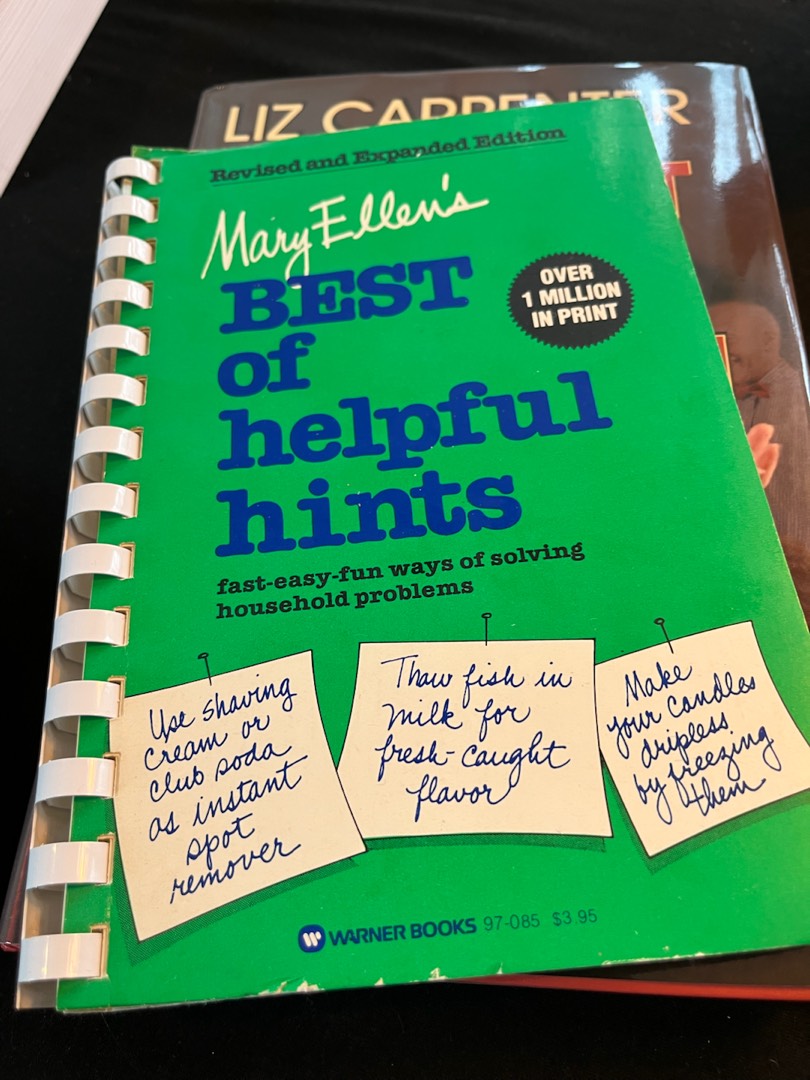 LIZ CARPENTER
Revised and Expanded Edition
Mary Ellen's
BEST
of
helpful
hints
OVER
1 MILLION
IN PRINT
fast-easy-fun ways of solving
household problems
Use shaving
cream or
club soda
as instant
spot
remover
Thaw fish in
milk for
fresh-caught
flavor
Make
your candles
dripless
by freezing
them
WARNER BOOKS 97-085 $3.95